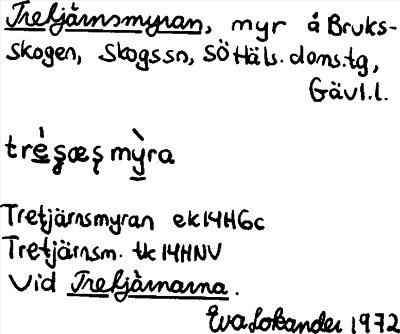 Tretjärnsmyran, myr å Bruks-
skogen, Skogs sn, SöHäls. doms.tg,
Gävl.l.
trè̱ʂæʂ mỳ̱ra
Tretjärnsmyran ek 14H6c
Tretjärnsm. tk 14HNV
Vid Tretjärnarna.
Eva Lokander 1972